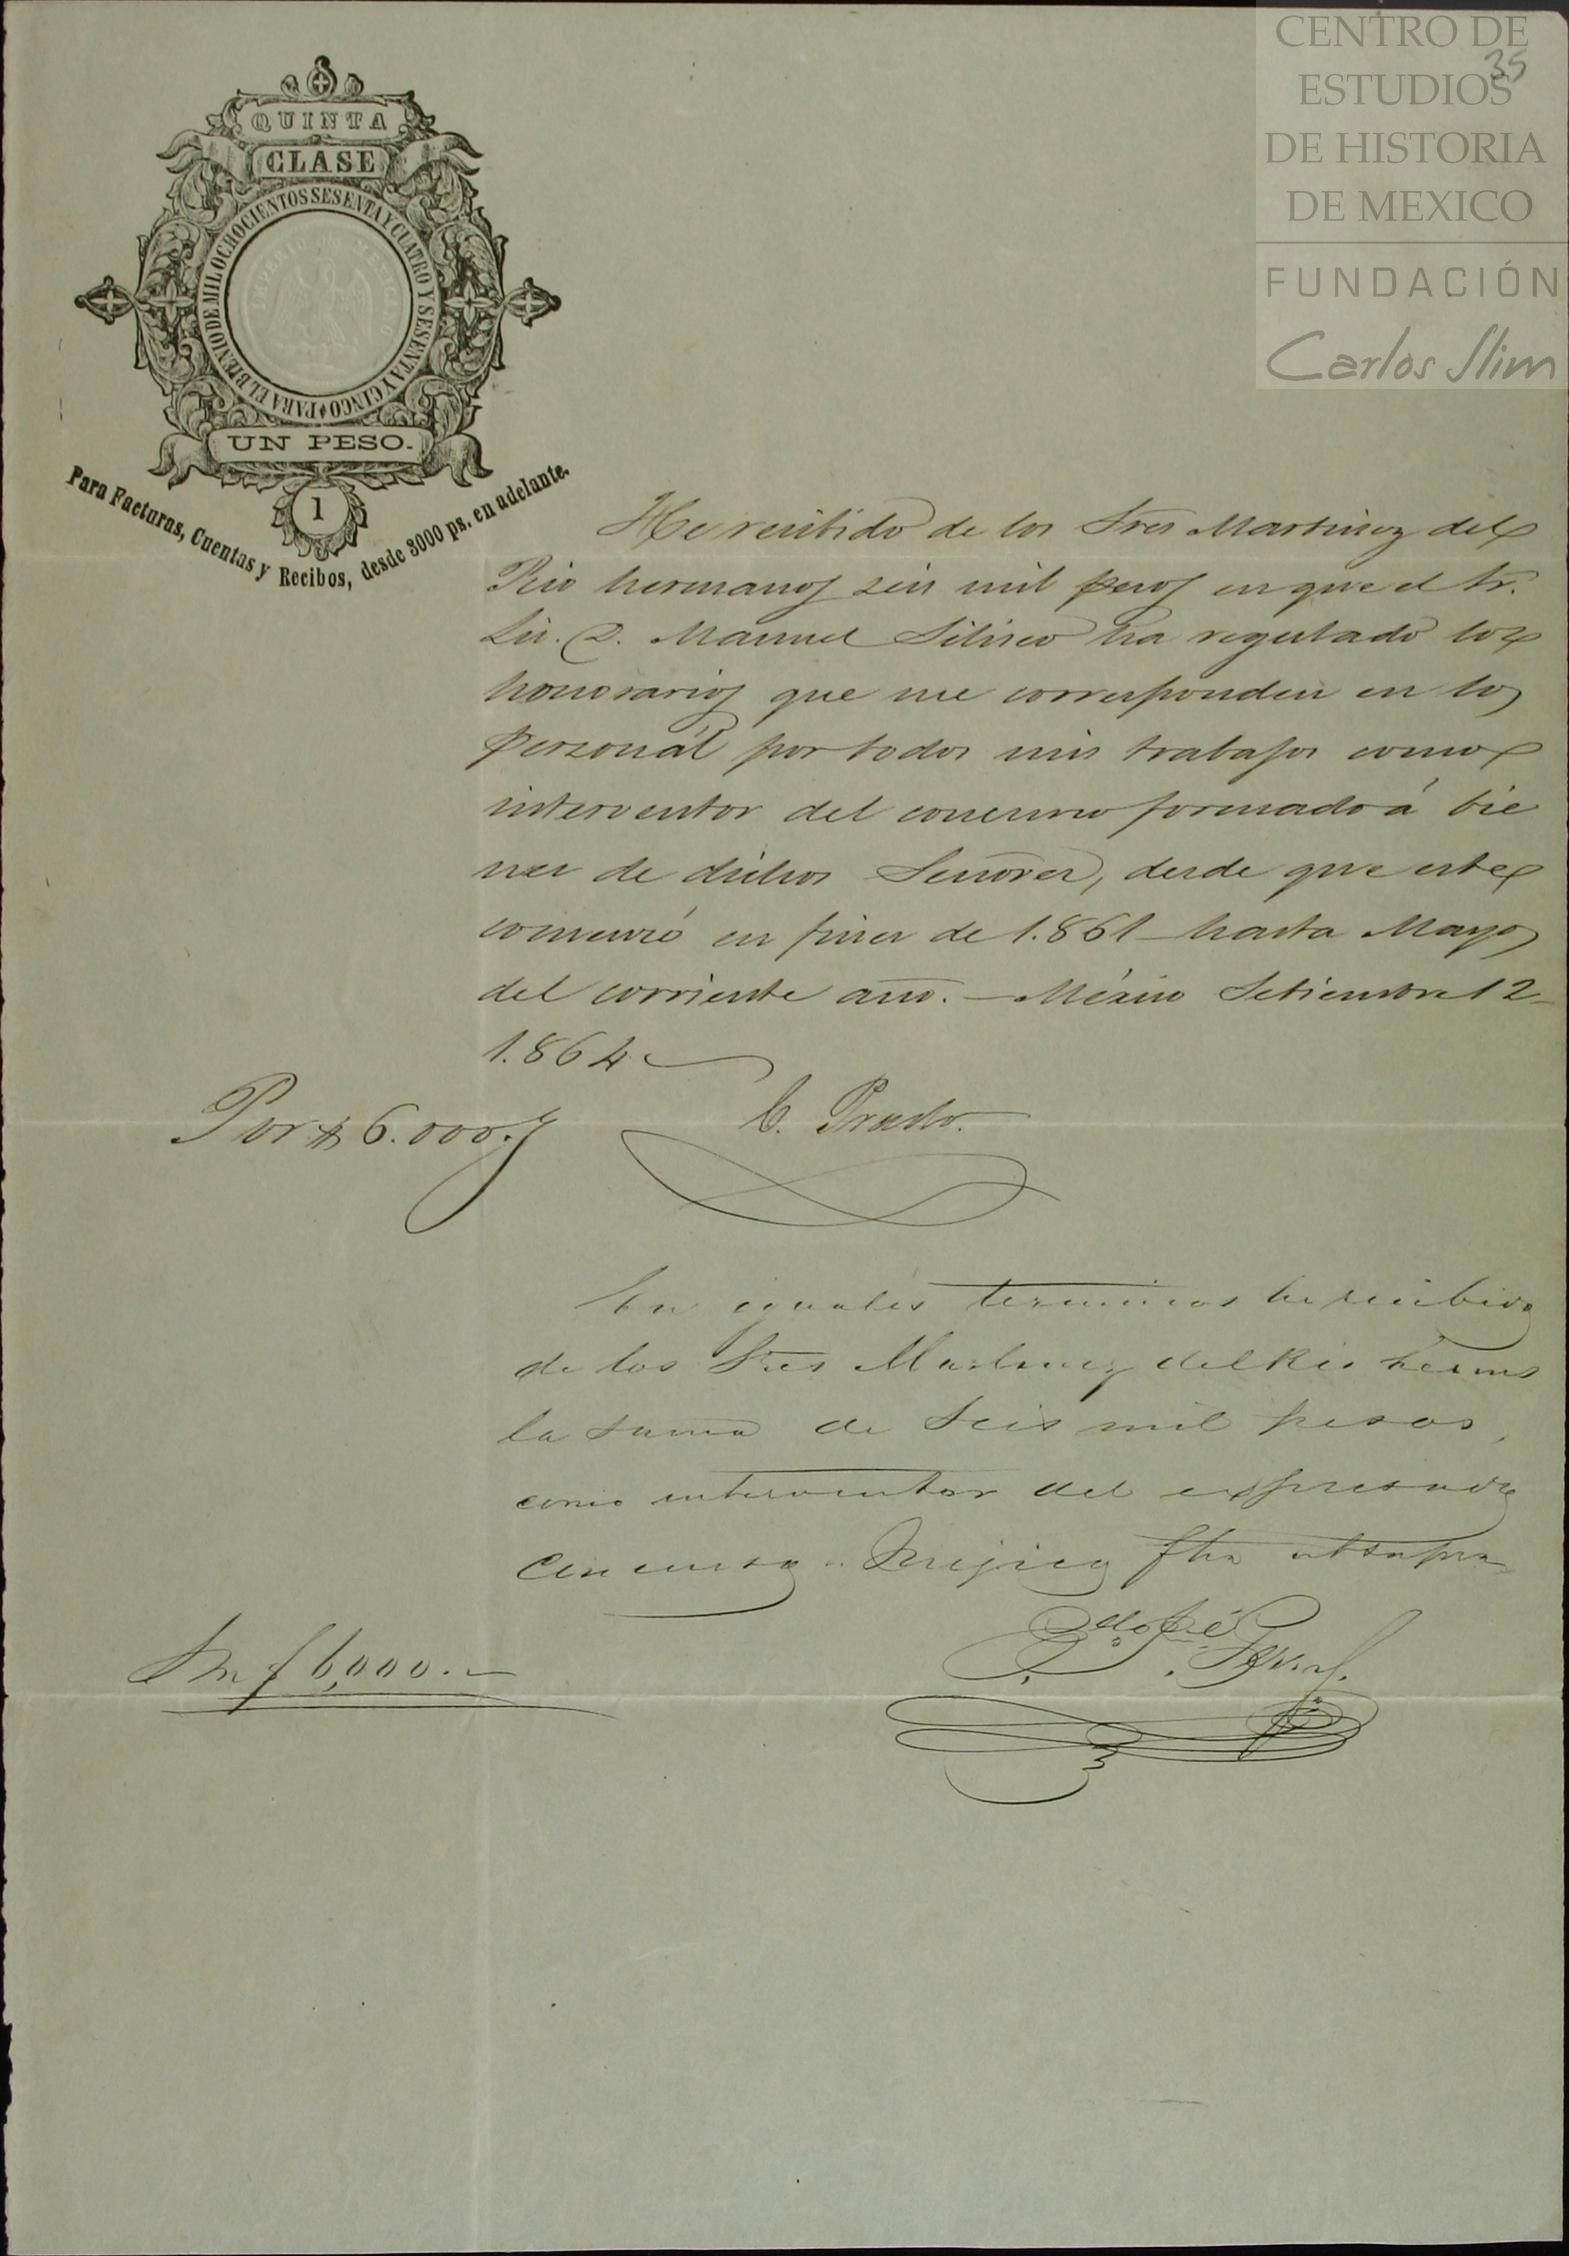 CENTRO DE
ESTUDIOS
DE HISTORIA
DE MEXICO
FUNDACIÓN
Carlos Slim
35
QUINTA
CLASE
PARA EL BIENIO DE MIL OCHOCIENTOS SESENTA Y CUATRO Y SESENTA Y CINCO
IMPERIO MEXICANO
UN PESO.
1
Para Facturas, Cuentas y Recibos, desde 3000 ps. en adelante.
He recibido de los Sres Martinez del
Rio hermanos seis mil pesos en que el Sr.
Lic. D. Manuel Siliceo ha regulado los
honorarios que me corresponden en lo
personál por todos mis trabajos como
interventor del concurso formado á bie
nes de dichos Señores, desde que este
comenzó en fines de 1.861 hasta Mayo
del corriente año. - México Setiembre 12
1.864
Por $ 6.000.
C. Prado.
En iguales terminos he recibido
de los Sres Martinez del Rio herms
la suma de Seis mil pesos,
como interventor del expresado
Concurso. Mejico fha ut supra
Son $ 6,000.-